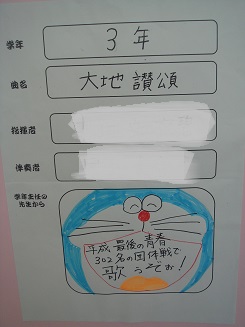 学年 3年
曲名 大地讃頌
指揮者
伴奏者
学年主任の
先生から
平成最後の青春
302名の団体戦で
歌うぞぉ!